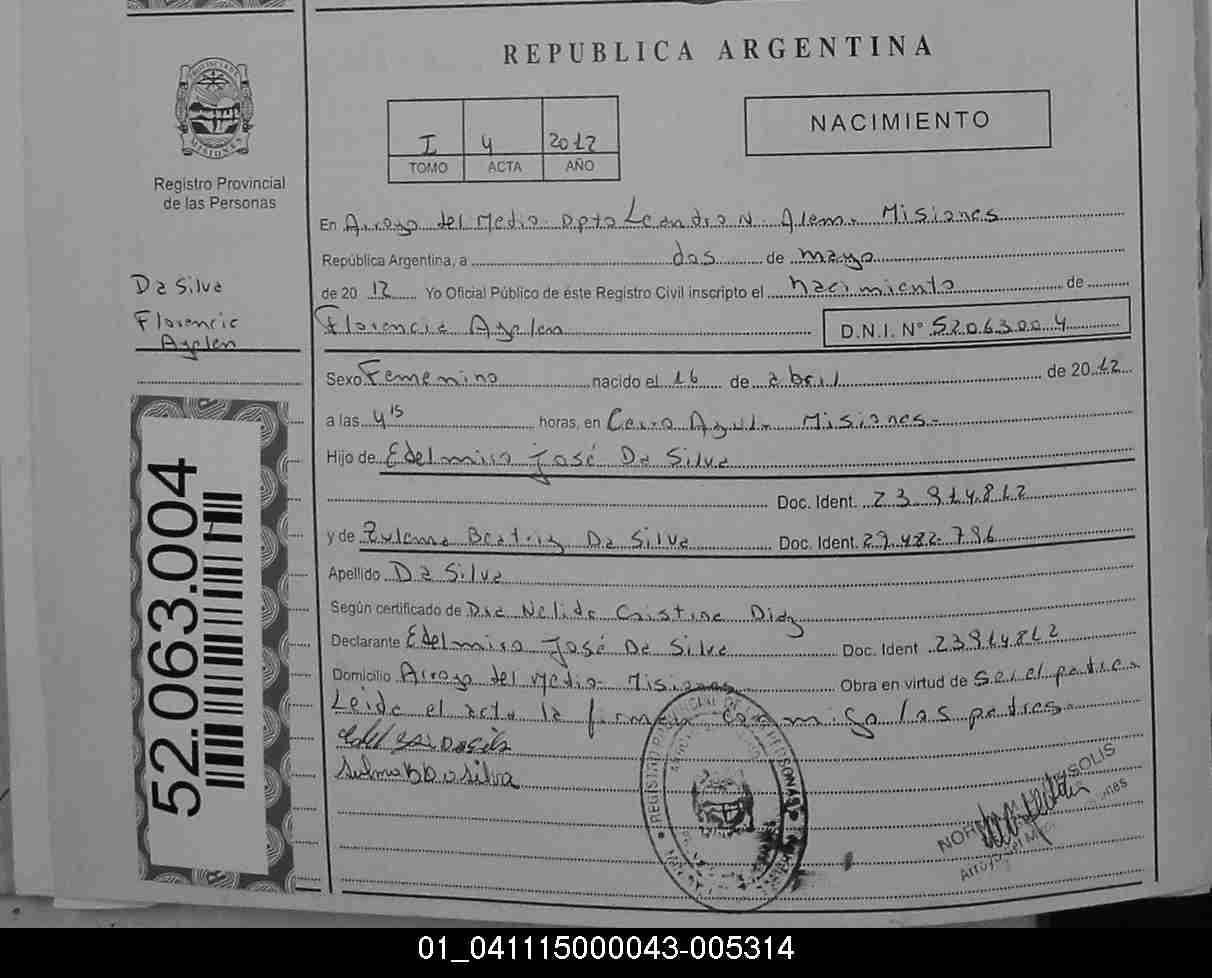 REPUBLICA ARGENTINA
PROVINCIA DE
MISIONES
Registro Provincial
de las Personas
I 4 2012
TOMO ACTA AÑO
NACIMIENTO
En Arroyo del Medio. Dpto Leandro N. Alem. Misiones
República Argentina, a dos de mayo
de 2012 Yo Oficial Público de éste Registro Civil inscripto el nacimiento de
Florencia Ayelen D.N.I. Nº 52063004
Da Silva
Florencia
Ayelen
Sexo Femenino nacido el 16 de abril de 2012
a las 4 15 horas, en Cerro Azul. Misiones.-
Hijo de Edelmiro José Da Silva
Doc. Ident. 23.914.812
y de Zulema Beatriz Da Silva Doc. Ident. 29.482.796
Apellido Da Silva
Según certificado de Dra Nelida Cristina Diaz
Declarante Edelmiro José Da Silva Doc. Ident 23914812
Domicilio Arroyo del Medio. Misiones Obra en virtud de ser el padre.
Leida el acta la firman conmigo los padres.
52.063.004
REGISTRO PROVINCIAL DE LAS PERSONAS
SOLIS
Arroyo del
01_041115000043-005314